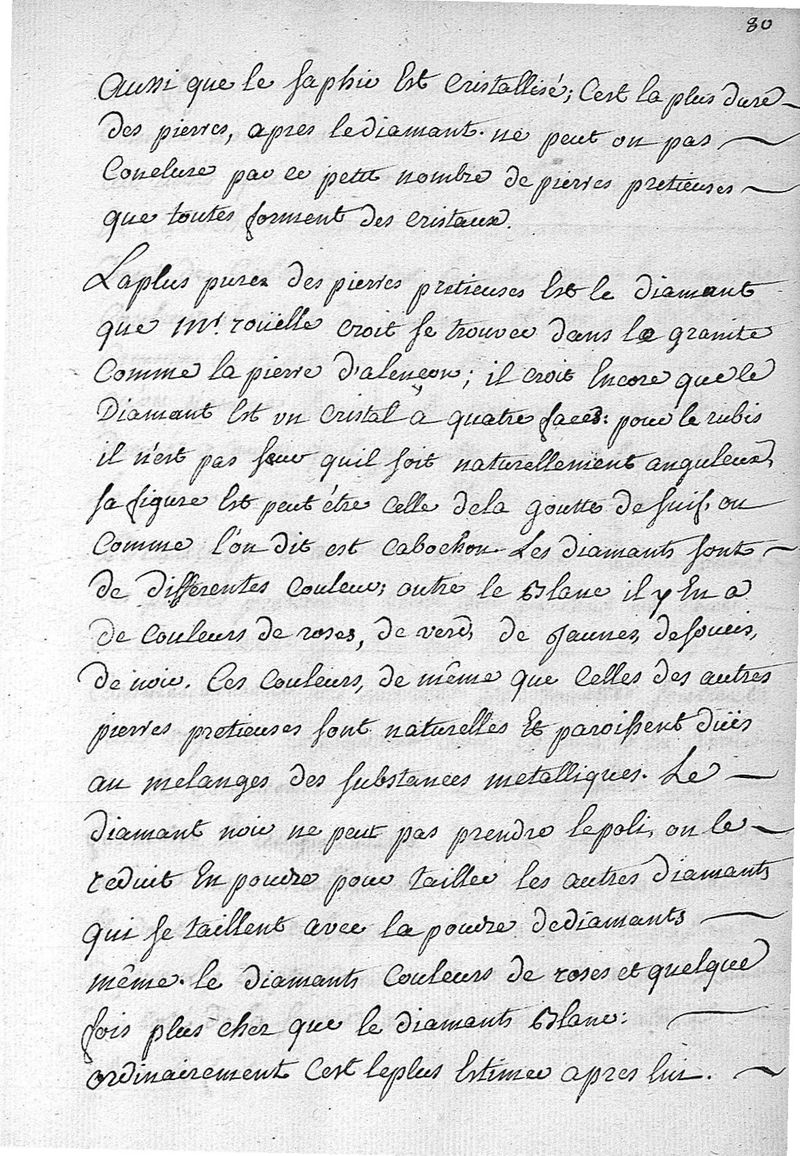 80
Aussi que le saphir Est Cristallisé; C'est la plus dure
des pierres, apres le diamant. ne peut on pas
Conclure par ce petit nombre de pierres pretieuses
que toutes forment des cristaux.
La plus pures des pierres pretieuses Est le diamant
que Mr. roüelle croit se trouver dans le granite
Comme la pierre d'alençon; il croit Encore que le
Diamant Est un cristal a quatre faces: pour le rubis
il n'est pas seur quil soit naturellement anguleux,
sa figure Est peut étre Celle de la goutte de suif, ou
Comme l'on dit est cabochon. Les diamants sont
de differentes Couleurs; outre le Blanc il y En a
de Couleurs de roses, de verds, de Jaunes,
de noir. Ces Couleurs, de même que Celles des autres
pierres pretieuses sont naturelles Et paroissent düis
au melanges des substances metalliques. Le
diamant noir ne peut pas prendre le poli, on le
reduit En poudre pour tailler les autres diamants
qui se taillent avec la poudre de diamants
même. le diamants Couleurs de roses et quelque
fois plus cher que le diamants Blanc:
ordinairement C'est le plus Estimée apres lui.